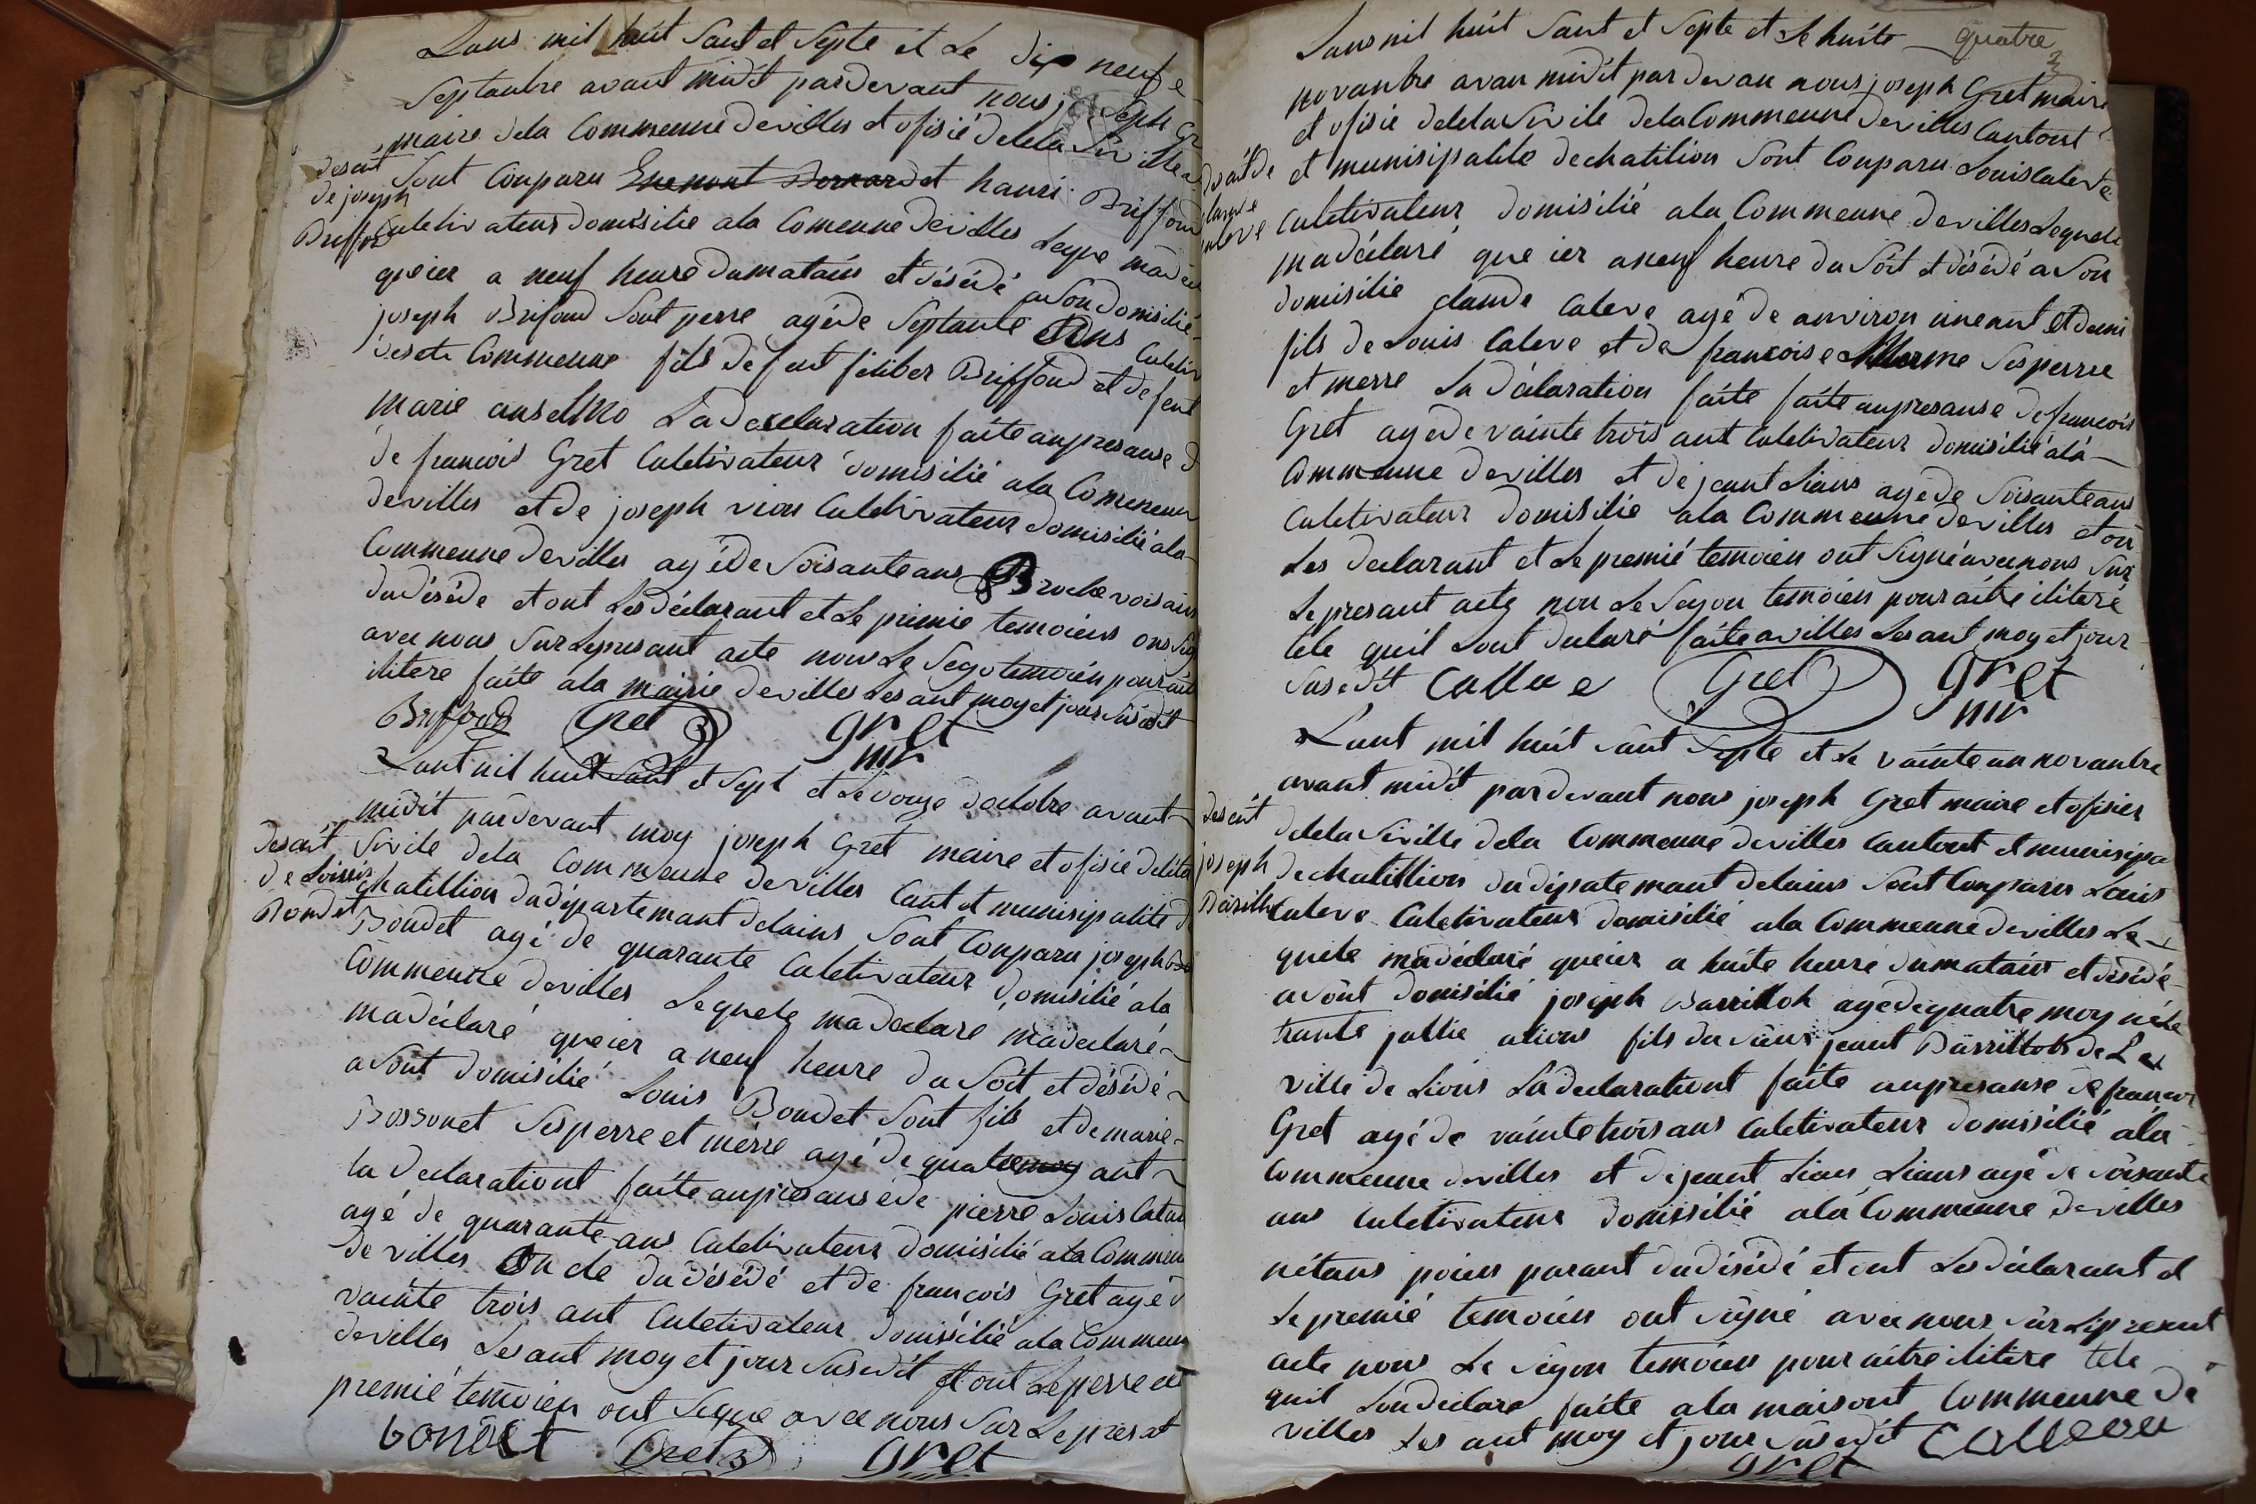 Lans mil huit Sant et Septe et Le dix neufe
Septanbre avant midit pardevant nous joseph Gr
maire dela Commeune devilles et ofisié delela Siville
desait
de joseph
Briffod
Sont Conparu Enemont Bernard et hanri Briffoud
Culetivateur domisilie ala Comeune devilles Leque madecl
queier a neuf heure dumatain et désédé a Son domisilié
joseph Brifoud Sont perre agéde Septante ans Culetiv
desete Commeune fils de feut filiber Briffoud et de feut
marie anselmo La declaration faite anpresanse d
de francois Gret Culetivateur domisilié ala Commeune
devilles et de joseph vion Culetivateur domisilié ala
Commeune devilles agéde Soisante ans Broche voisain
dudéséde et ont Les déclarant et Le primié temoiens ons Sig
avec nous Sur Lepresant acte non Le Sego temoién pour ait
ilitere faite ala mairie devilles Les ant moy et jour Susdit
Briffod Gret gret
mr
Lant mil huit Sant et Sept et Le douze doctobre avant
midit pardevant moy joseph Gret maire et ofisié delita
desait
de Louis
Bondet
Sivile dela Commeune devilles Cant et munisipalité d
chatillion dudépartemant delains Sont Conparu joseph
Bondet agé de quarante Culetivateur domisilié ala
Commeune devilles Lequele madeclaré madeclaré
madéclaré queier a neuf heure du Soit et désédé
a Sont domisilié Louis Bondet Sont fils et de marie
Bossonet Ses perre et mérre agé de quatre moy ant
la declarationt faite anpresanséde pierre Louis
agé de quarante ans Culetivateur domisilié ala Commeun
de villes Oncle du désédé et de francois Gret agé d
vainte trois ant Culetivateur domisilié ala Commeun
devilles Les ant moy et jour Susedit et ont Le perre et
premié temoien ont Signe avec nous Sur Le presat
bondet Gret gret
quatre
Lans mil huit Sant et Septe et Le huite
novanbre avan midit par devan nous joseph Gret maire
et ofisié delela Sivile dela Commeune devilles Cantont
desait de
claude
caleve
et munisipalite dechatilion Sont Conparu Louis Caleve
Culetivateur domisilié ala Commeune devilles Lequele
madéclaré que ier a neuf heure du Soit et désédé a Son
domisilie claude Caleve agé de anviron une ant et demi
fils de Louis Caleve et de francoise Ses perre
et merre La déclaration faite faite anpresanse de francois
Gret agéde vainte trois ant Culetivateur domisilié ala
Commeune devilles et de jeant Lians agéde Soisante ans
Culetivateur domisilie ala Commeune devilles et on
Les declarant et Le premié temoien ont Signé avec nous Sur
Le presant acte non Le Segon temoien pour aitre ilitere
tele quil Sont declaré faite a villes Les ant moy et jour
Susedit Calleve Gret gret
mr
Lant mil huit Sant Septe et Le vainte un novanbre
avant midit pardevant nous joseph Gret maire et ofisier
desait
joseph
Barillot
delela Siville dela Commeune devilles Cantont et munisipa
dechatillion dudépatemant delains Sont Conparu Louis
Caleve Culetivateur domisilié ala Commeune devilles Le
quele madéclaré queier a huite heure dumatain et désédé
a Sont domisilié joseph Barrillot agedequatre moy néle
trante jullie a lions fils du Sieur jeant Barrillot de La
ville de Lions La declarationt faite anpresanse de francoi
Gret agé de vainte trois ans Culetivateur domisilié ala
Commeune devilles et de jeant Lians Lians agé de Soisante
ans Culetivateur domisilié ala Commeune devilles
nétans poien parant dudésédé et ont Les déclarant et
Le premié temoien ont Signé avec nous Sur Le present
acte nons Le Segon temoien pour aitre ilitere tele
quil Son declaré faite ala maisont Commeune de
villes Les ant moy et jour Susedit Calleve
gret